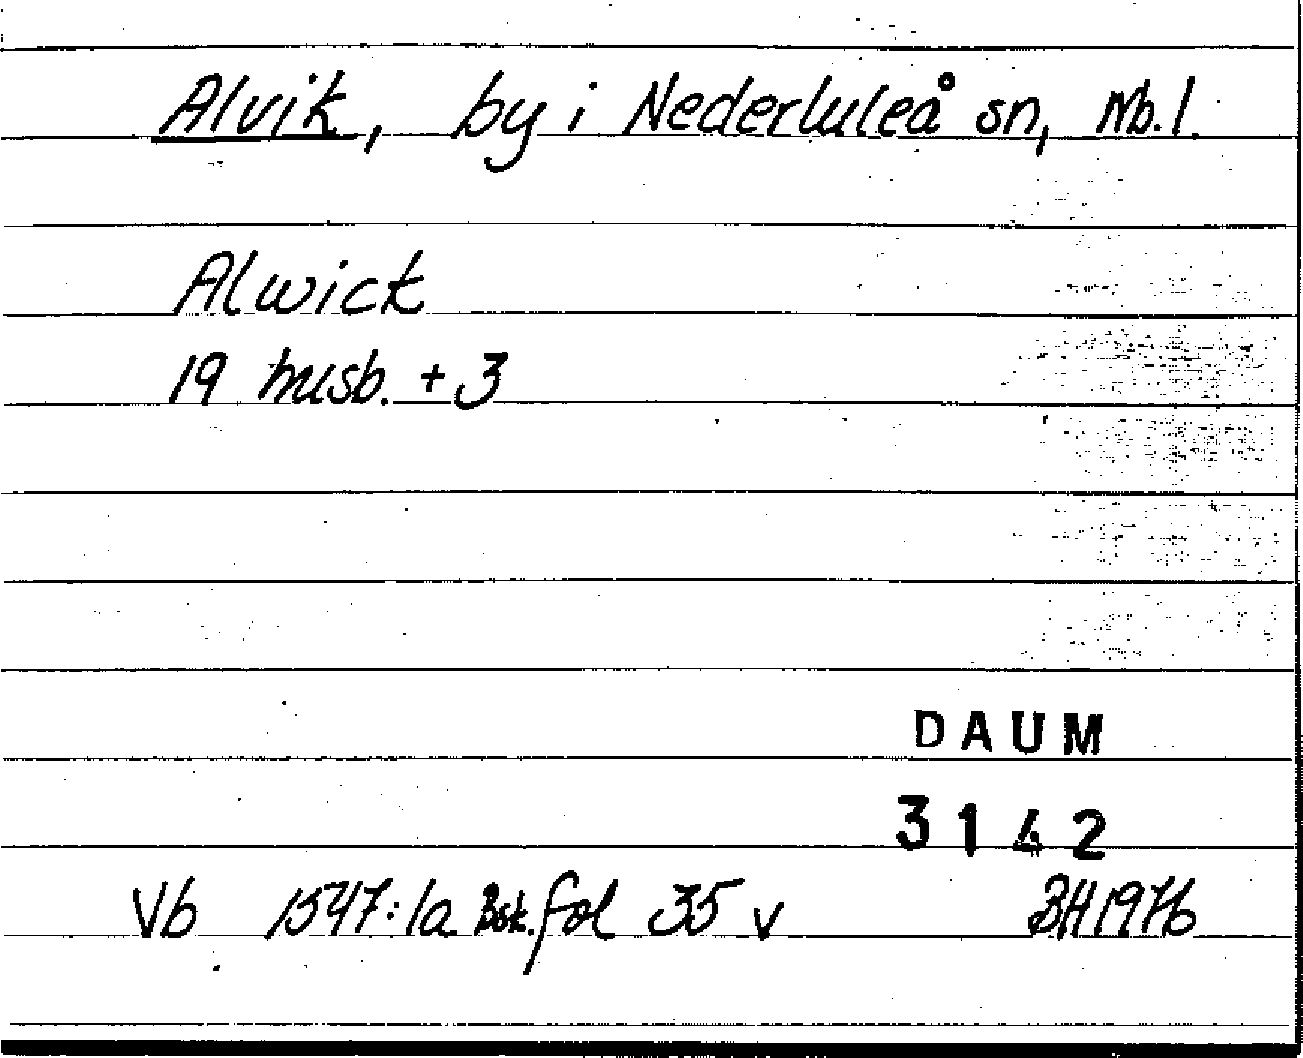 Alvik, by i Nederluleå sn, Nb.l.
Alwick
19 husb. + 3
DAUM
3142
Vb 1547:1a Bsk. fol 35 v BH 1976